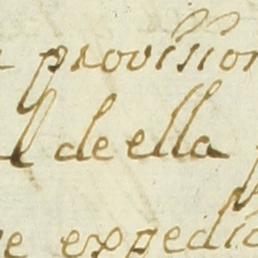 provission
l de ella
e expedic